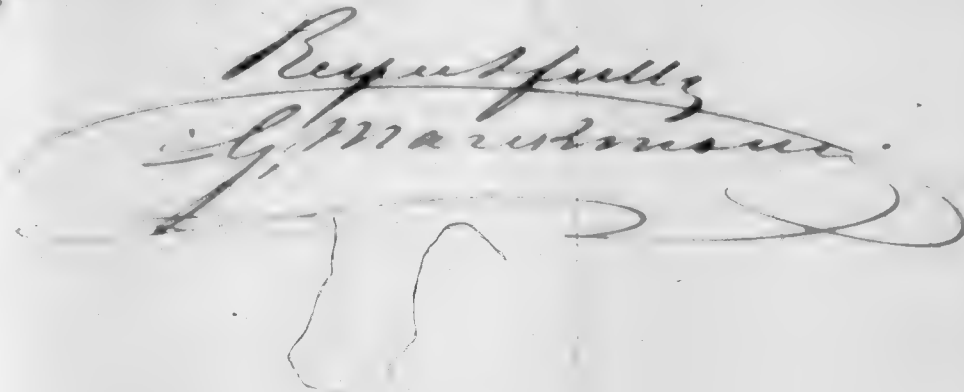 Respectfully
G. Marksmann.